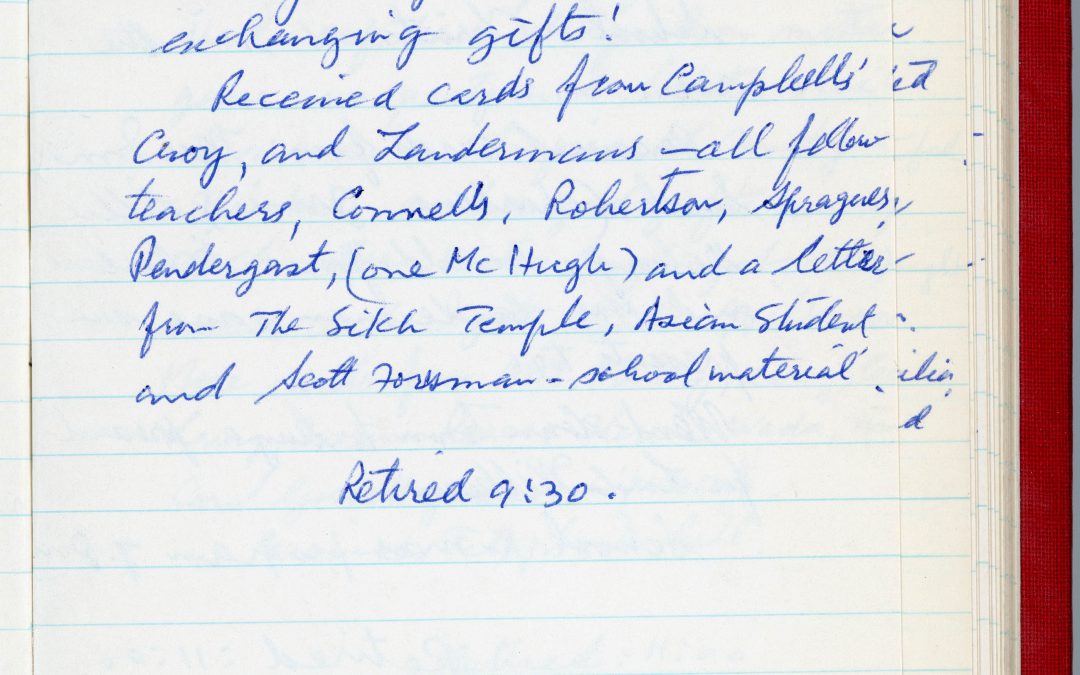 exchanging gifts!
Received cards from Campbells'
and Landermans – all fellow
teachers, Connells, Robertson, Spragues,
Pendergast, (one McHugh) and a letter
from The Sikh Temple, Asian Student
and Scott Forsman – school material.
Retired 9:30.